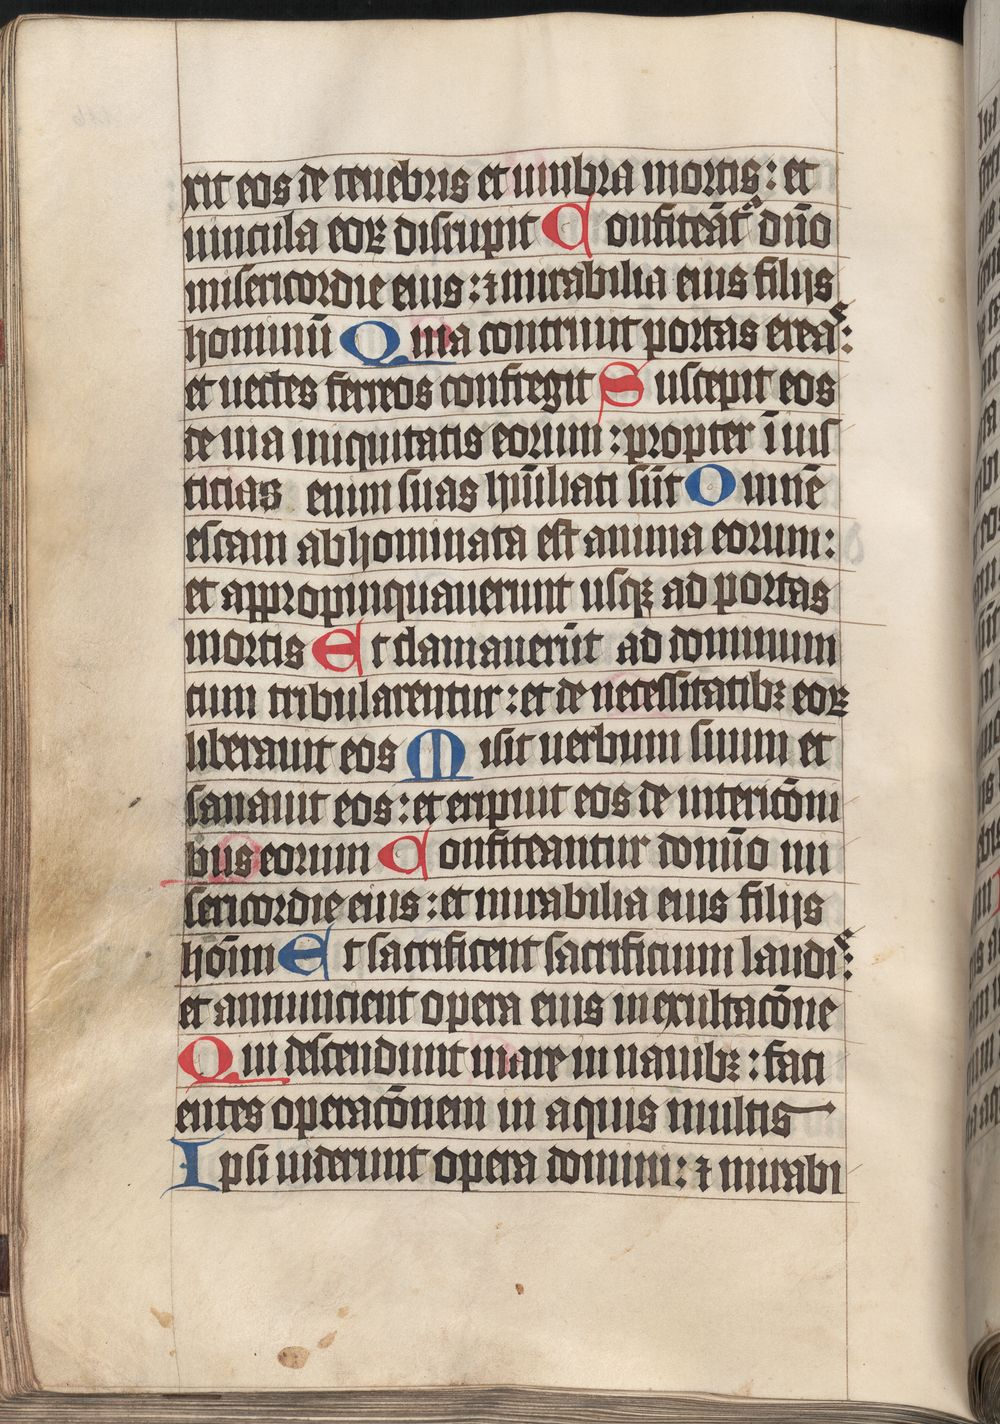 xit eos de tenebris et umbra mortis: et
uincula eoꝝ disrupit Confiteãt᷑ dño
misericordie eius: ⁊ mirabilia eius filijs
hominũ Quia contriuit portas ereas:
et uectes ferreos confregit Suscepit eos
de uia iniquitatis eorum: propter ĩius
ticias enim suas hũiliati sũt Omnẽ
escam abhominata est anima eorum:
et appropinquauerunt usqꝫ ad portas
mortis Et clamauerũt ad dominum
cum tribularentur: et de necessitatibꝫ eoꝝ
liberauit eos Misit uerbum suum et
sanauit eos: et eripuit eos deintericõni
bus eorum Confiteantur domĩo mi
sericordie eius: et mirabilia eius filijs
hoĩm Et sacrificent sacrificium laudis:
et annuncient opera eius in exultacõne
Qui descendunt mare in nauibꝫ: faci
entes operacõnem in aquis multis
Ipsi uiderunt opera domini: ⁊ mirabi